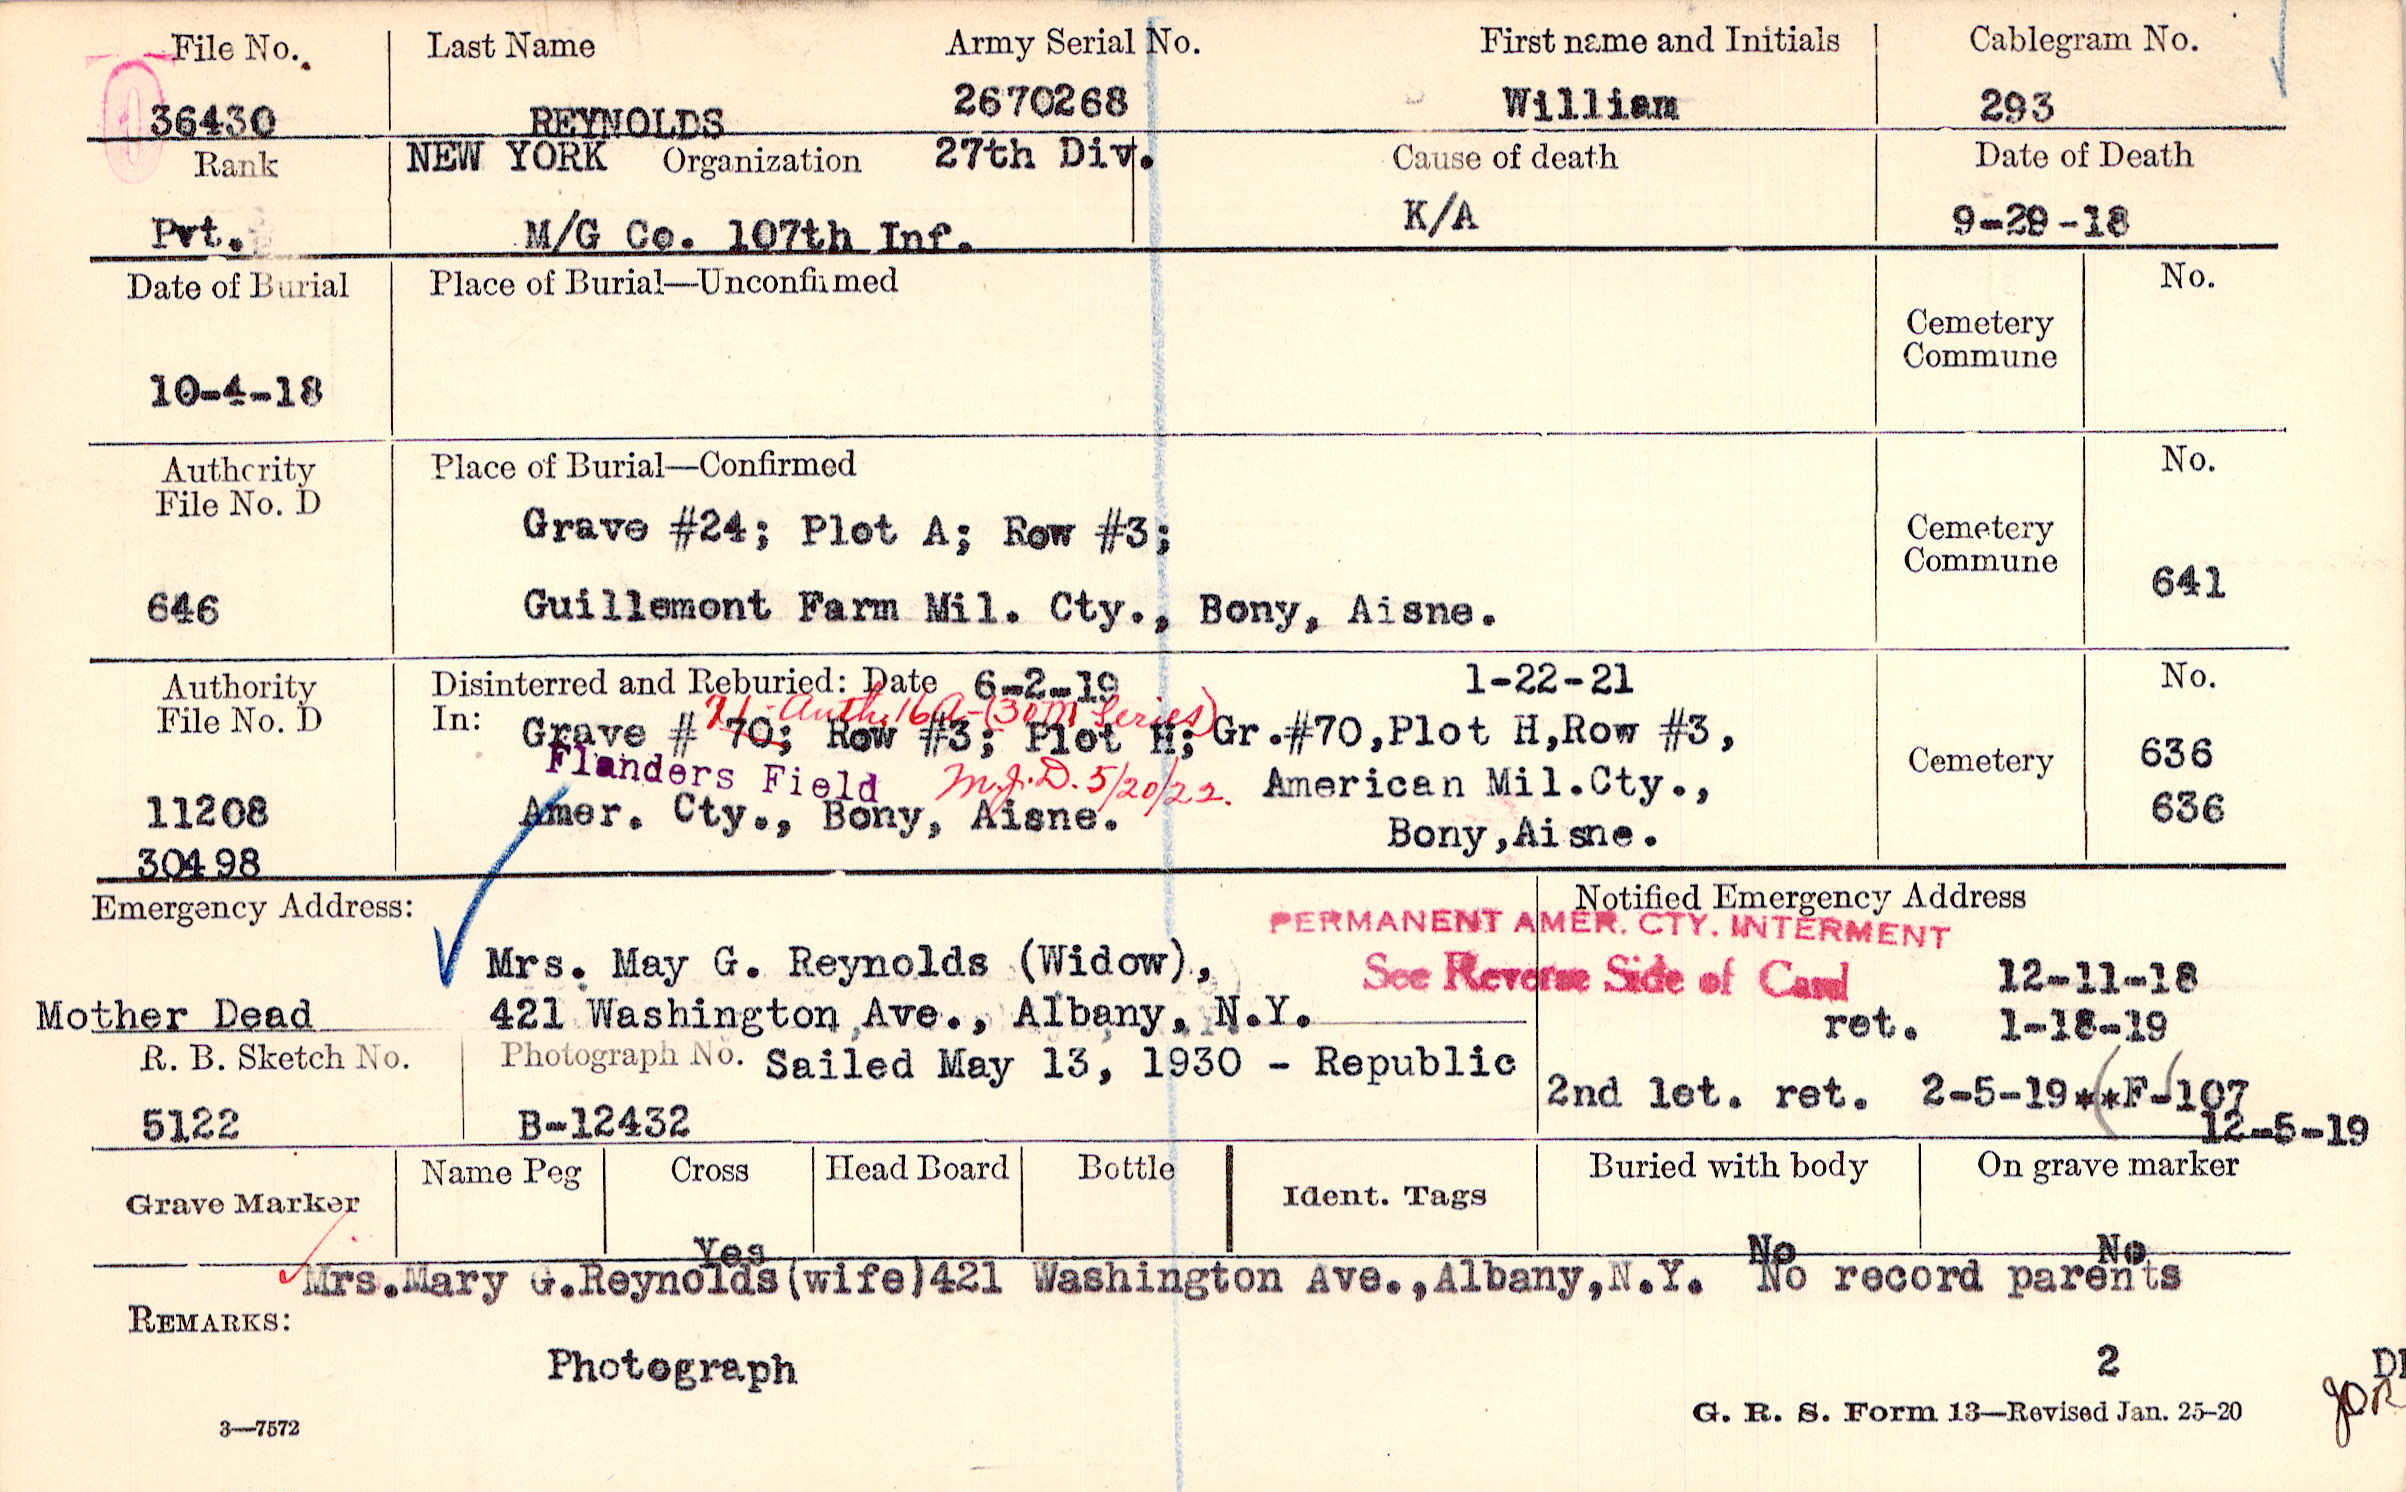 File No. Last Name Army Serial No. First name and Initials Cablegram No.
36430 REYNOLDS 2670268 William 293
Rank NEW YORK Organization 27th Div. Cause of death Date of Death
Pvt. M/G Co. 107th Inf. K/A 9-29-18
Date of Burial Place of Burial—Unconfirmed No.
Cemetery
Commune
10-4-18
Authority Place of Burial—Confirmed No.
File No. D
Grave #24; Plot A; Row #3; Cemetery
Commune 641
646 Guillemont Farm Mil. Cty., Bony, Aisne.
Authority Disinterred and Reburied: Date 6-2-19 1-22-21 No.
71-Auth. 16A-(30M Series)
File No. D In: Grave # 70; Row #3; Plot H; Gr.#70,Plot H,Row #3, 636
Flanders Field M.J.D. 5/20/22. American Mil.Cty., Cemetery
11208 Amer. Cty., Bony, Aisne. Bony,Aisne. 636
30498
Emergency Address: Notified Emergency Address
PERMANENT AMER. CTY. INTERMENT
Mrs. May G. Reynolds (Widow), See Reverse Side of Card 12-11-18
Mother Dead 421 Washington Ave., Albany, N.Y. ret. 1-18-19
R. B. Sketch No. Photograph No. Sailed May 13, 1930 - Republic
2nd let. ret. 2-5-19**F-107
5122 B-12432 12-5-19
Grave Marker Name Peg Cross Head Board Bottle Ident. Tags Buried with body On grave marker
Yes No No
Mrs.Mary G.Reynolds(wife)421 Washington Ave.,Albany,N.Y. No record parents
REMARKS:
Photograph 2
G. R. S. Form 13—Revised Jan. 25-20 JOR
3—7572